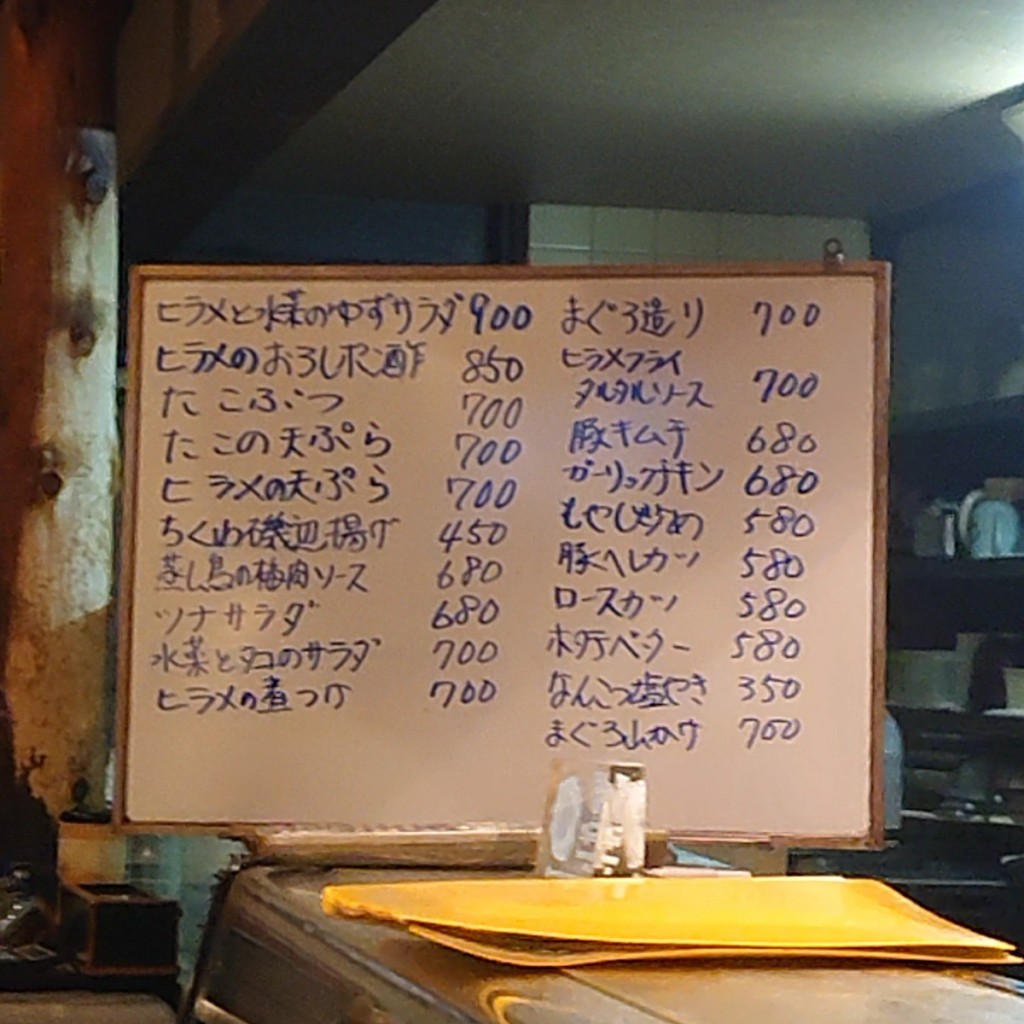 ヒラメと水菜のゆずサラダ 900
ヒラメのおろしポン酢 850
たこぶつ 700
たこの天ぷら 700
ヒラメの天ぷら 700
ちくわ磯辺揚げ 450
蒸し鳥の梅肉ソース 680
ツナサラダ 680
水菜とタコのサラダ 700
ヒラメの煮つけ 700
まぐろ造り 700
ヒラメフライ
タルタルソース 700
豚キムチ 680
ガーリックチキン 680
もやし炒め 580
豚ヘレカツ 580
ロースカツ 580
ホタテバター 580
なんこつ塩やき 350
まぐろ山かけ 700